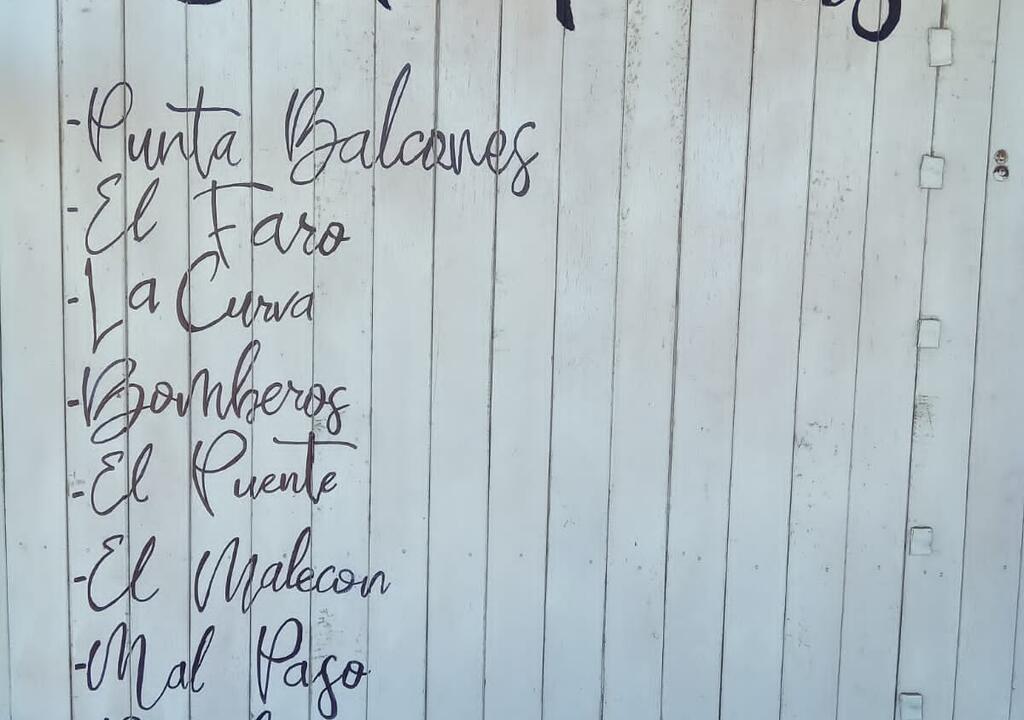 -Punta Balcones
-El Faro
-La Curva
-Bomberos
-El Puente
-El Malecon
-Mal Paso